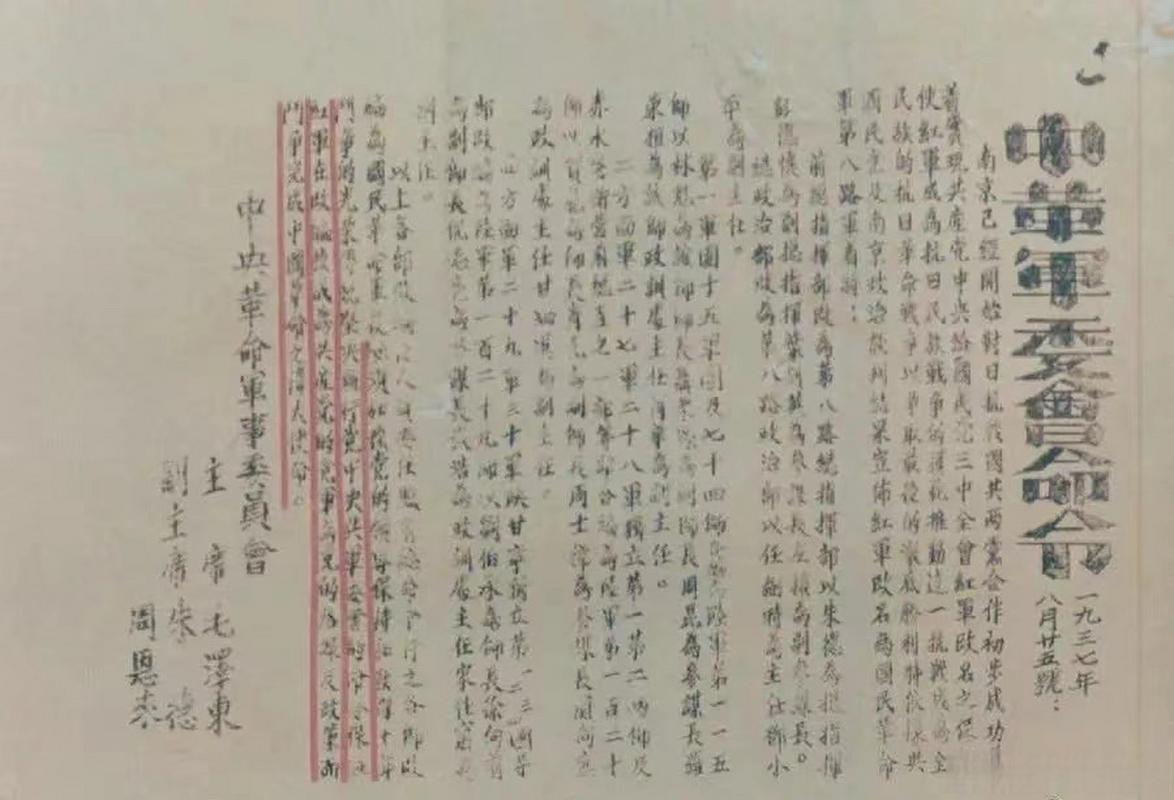 中華軍委會命令
一九三七年
八月廿五號：
南京已經開始對日抗戰國共兩黨合作初步成功
着實現共產黨中央給國民黨三中全會紅軍改名之保
使紅軍成為抗日民族戰爭的模範推動這一抗戰成為全
民族的抗日革命戰爭以爭取最後的澈底勝利特依據共
與南京政治談判結果宣佈紅軍改名為國民革命
軍第八路軍
前總指揮部改為第八路總指揮部以朱德為總指揮
彭德懷為副總指揮葉劍英為參謀長左權為副參謀長。
總政治部改為第八路政治部以任弼時為主任鄧小
平為副主任。
第一軍團十五軍團及七十四師 陸軍第一一五
師以林彪為 師長聶榮臻為副師長周昆為參謀長羅
東 為該師政訓處主任蕭華為副主任。
二方面軍二十七軍二十八軍獨立第一第二兩師及
赤水 之一部 陸軍第一百二十
師以賀龍為師長蕭克為副師長周士 為參謀長關向應
為政訓處主任甘泗淇為副主任。
四方面軍二十九軍三十軍陝甘寧獨立第一二三四
改 陸軍第一百二十九師以劉伯承為師長徐向前
為副師長倪志亮為參謀長張浩為政訓處主任宋任窮為
副主任。
以上各部改 之各師改
為國民革命軍 黨的領導保持 十年
鬥爭的光榮 黨中央 軍委 命令保
紅軍在 成為共產黨的黨軍 黨 政策而
鬥爭完成中國革命之偉大使命。
中央革命軍事委員會
主席毛澤東
副主席朱德
周恩來